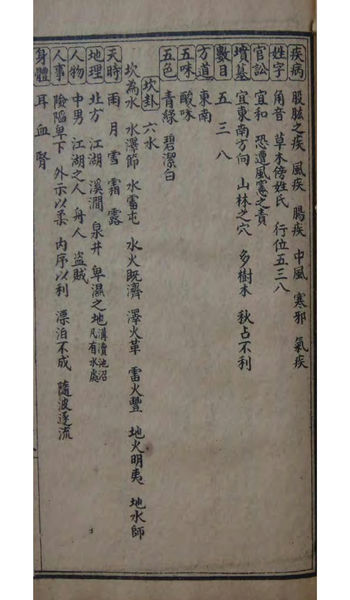 疾病 股肱之疾 風疾 腸疾 中風 寒邪 氣疾
姓字 角音 草木傍姓氏 行位五三八
官訟 宜和 恐遭風憲之責
墳墓 宜東南方向 山林之穴 多樹木 秋占不利
數目 五 三 八
方道 東南
五味 酸味
五色 青綠 碧潔白
坎卦 六水
坎為水 水澤節 水雷屯 水火既濟 澤火革 雷火豐 地火明夷 地水師
天時 雨 月 雪 霜 露
地理 北方 江湖 溪澗 泉井 卑濕之地 溝瀆池沼 凡有水處
人物 中男 江湖之人 舟人 盜賊
人事 險陷卑下 外示以柔 內序以利 漂泊不成 隨波逐流
身體 耳 血 腎